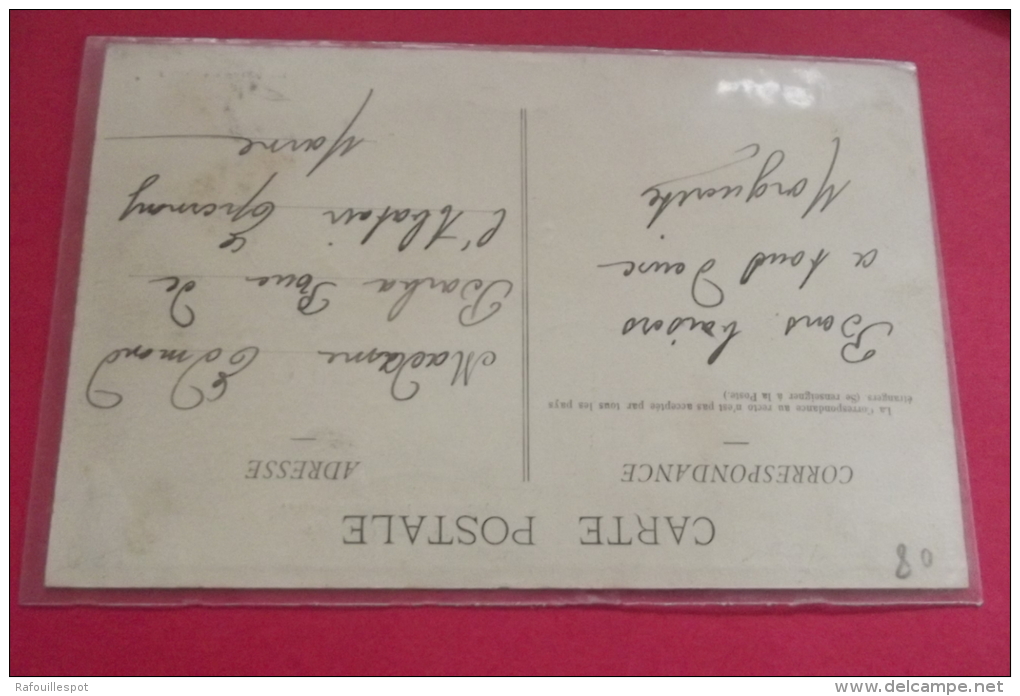 80
CARTE POSTALE
CORRESPONDANCE
La Correspondance au recto n'est pas acceptée par tous les pays
étrangers (Se renseigner à la Poste.)
Bons baisers
a tous
Marguerite
ADRESSE
Madame Edmond
Barba Rue de
l'Abatoir Epernay
Marne
Rafouillespot
www.delcampe.net